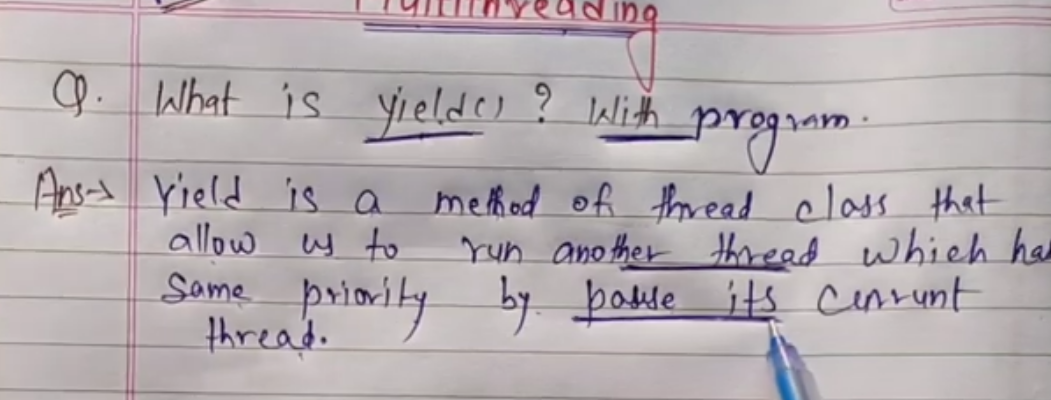 Multithreading
Q. What is yield() ? With program.
Ans→ Yield is a method of thread class that
allow us to run another thread which ha
Same priority by pause its currunt
thread.